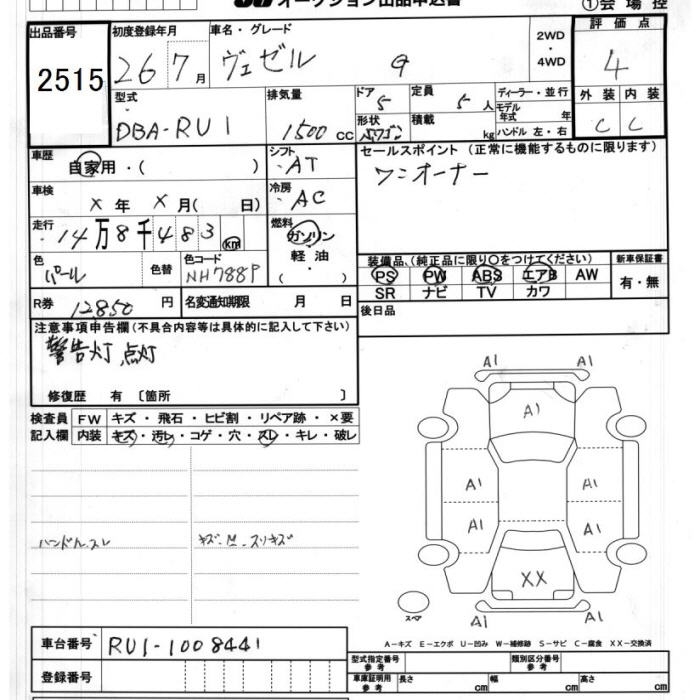 オークション出品申込書 ①会場控
出品番号 初度登録年月 車名・グレード 2WD ・ 4WD 評価点
2515 26年7月 ヴェゼル 4
型式 排気量 ドア 5 定員 5人 ディーラー・並行 外装 内装
DBA-RU1 1500cc 形状 積載 kg モデル年式 年 ハンドル 左・右 C C
車歴 自家用・( ) シフト AT セールスポイント (正常に機能するものに限ります)
車検 X年 X月( 日) 冷房 AC ワンオーナー
走行 14万8千483km 燃料 ガソリン 軽油 ・ ( )
色 パール 色替 色コード NH788P
装備品、(純正品に限り○をつけてください) 新車保証書
PS PW ABS エアB AW 有・無
SR ナビ TV カワ
R券 12,850円 名変通知期限 月 日 後日品
注意事項申告欄(不具合内容等は具体的に記入して下さい)
警告灯 点灯
修復歴 有 〔箇所 〕
検査員 FW キズ・飛石・ヒビ割・リペア跡・×要
記入欄 内装 キズ・汚レ・コゲ・穴・スレ・キレ・破レ
ハンドルスレ
A1 A1
A1
A1 A1
A1 A1
XX
A1 A1
スペア
A-キズ E-エクボ U-凹み W-補修跡 S-サビ C-腐食 XX-交換済
車台番号 RU1-1008441
登録番号
型式指定番号 参考 類別区分番号 参考
車庫証明用 参考 長さ cm 幅 cm 高さ cm